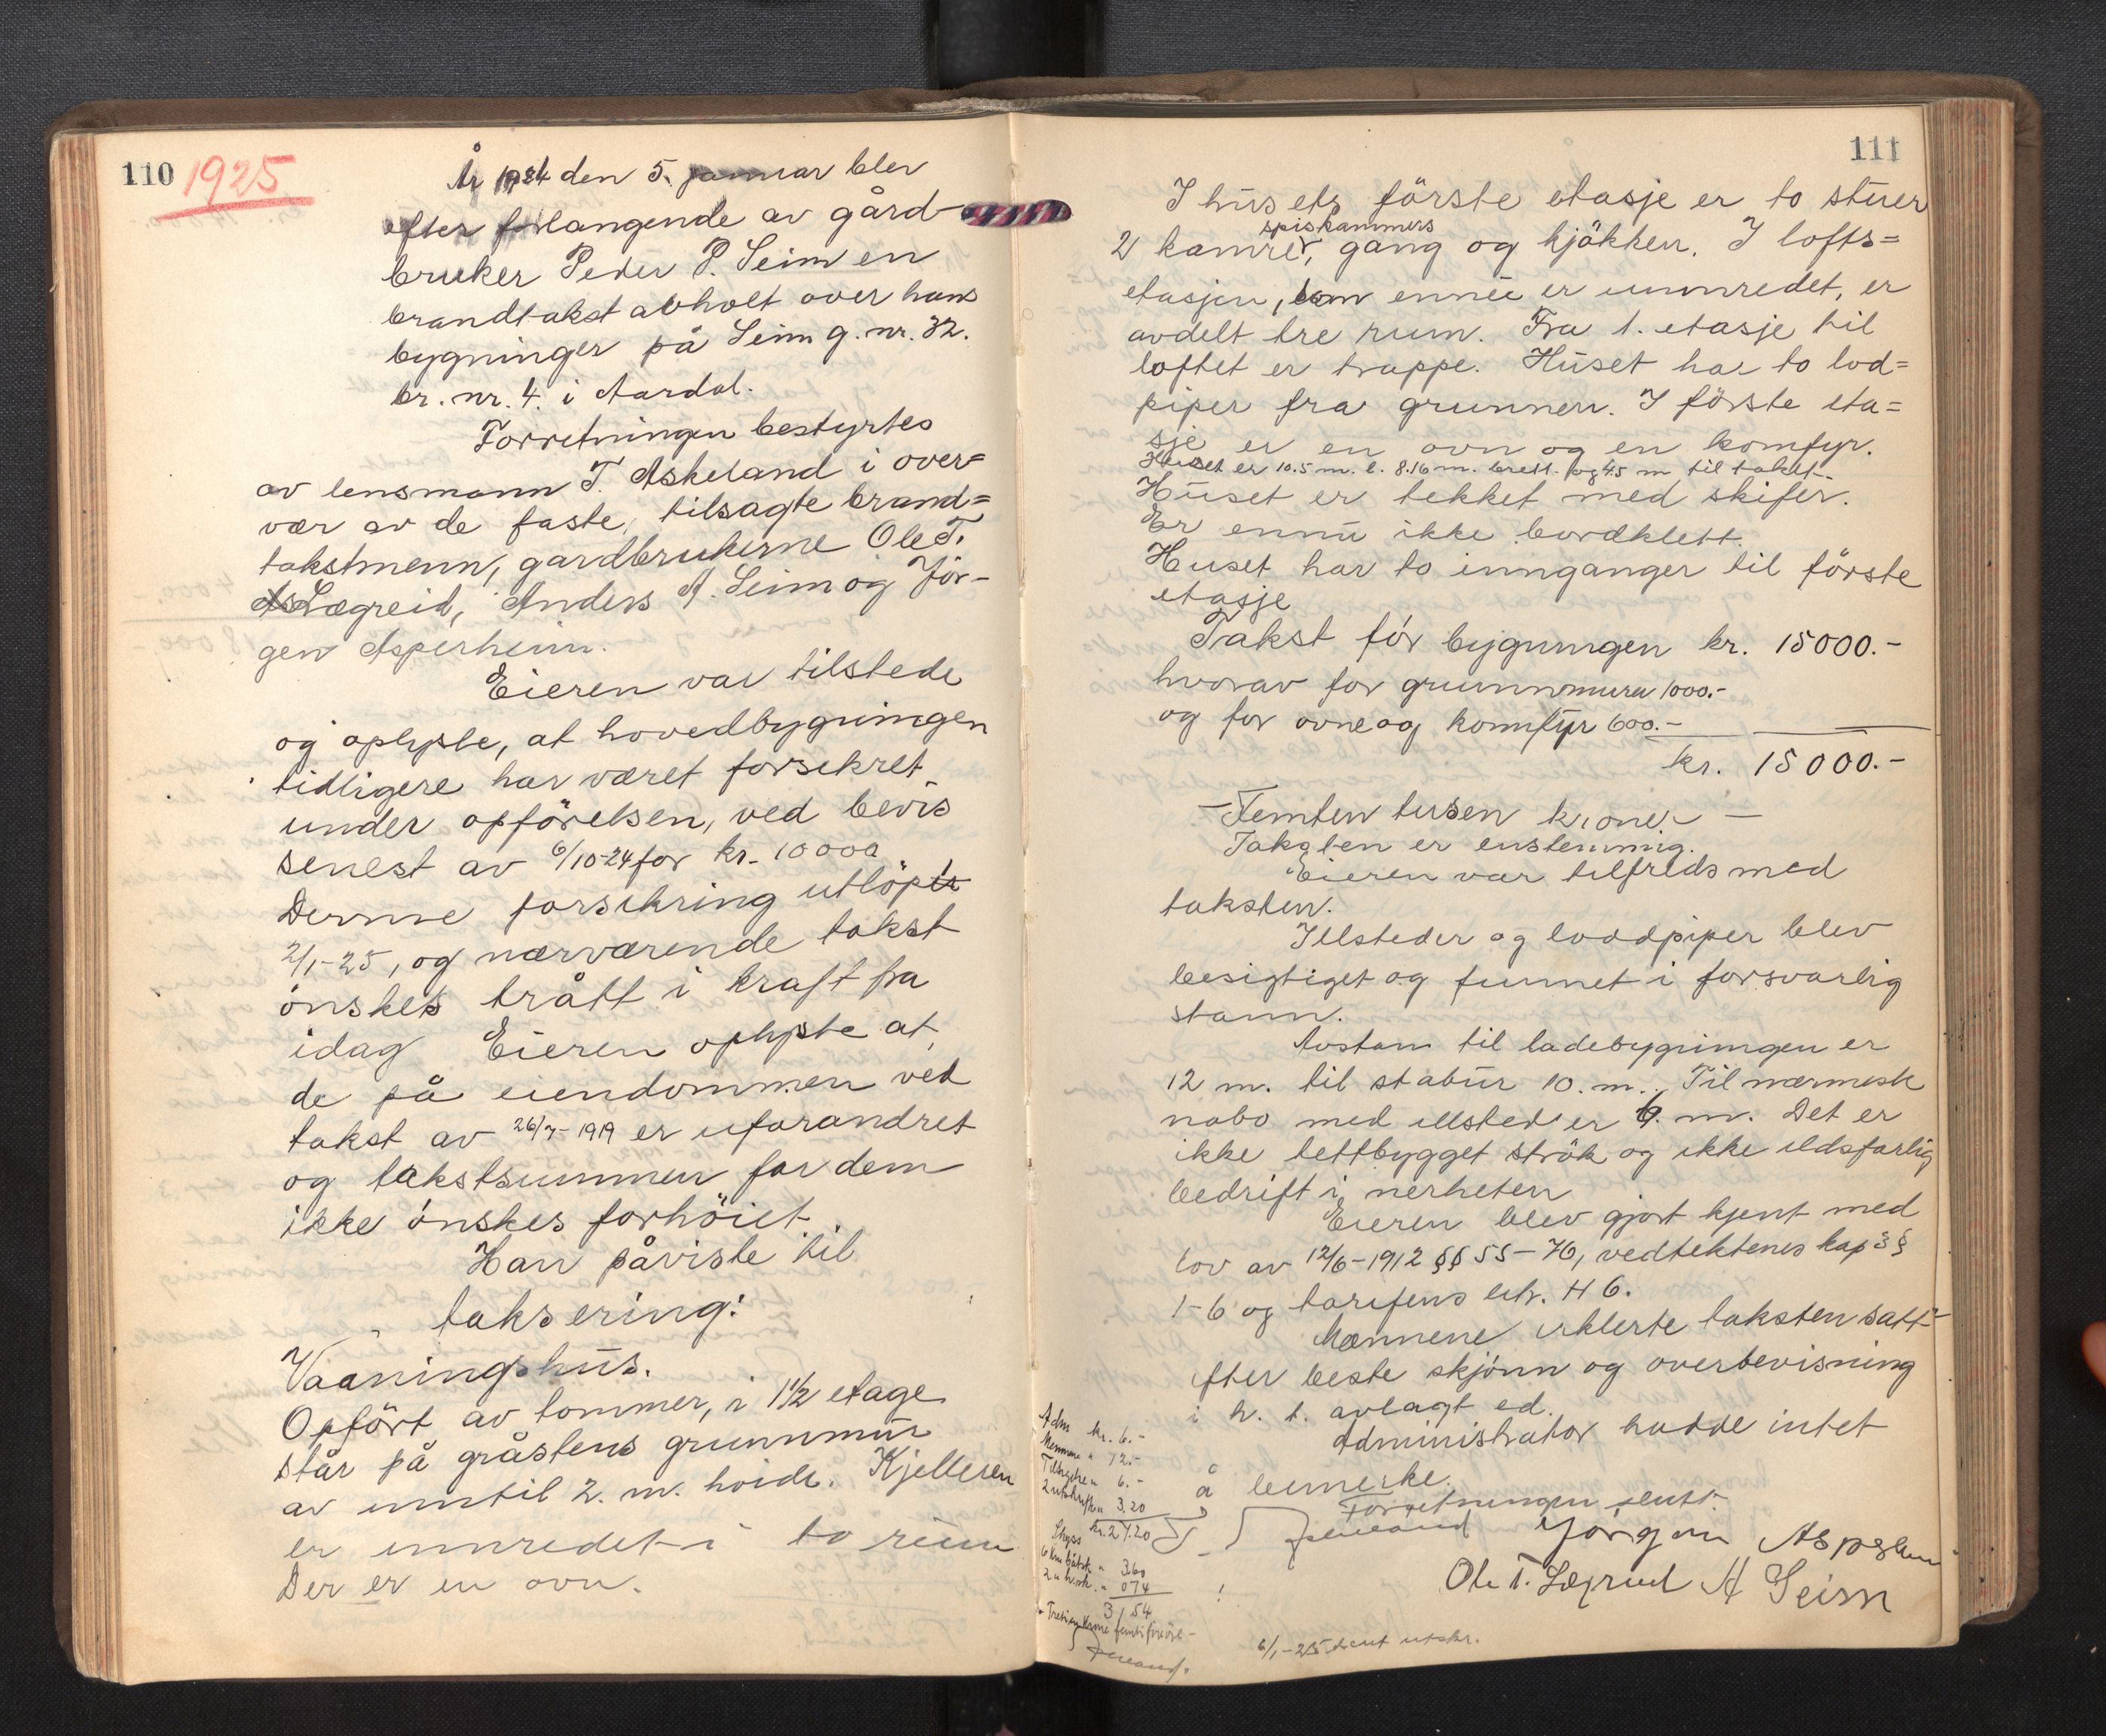 110 1925
År 1924 den 5. januar blev
efter forlangende av gård-
bruker Peder P. Seim en
brandtakst avholt over hans
bygninger på Seim g. nr. 32.
br. nr. 4. i Aardal.
Forretningen bestyrtes
av lensmann T. Askeland i over=
vær av de faste, tilsagte brand=
takstmenn, gardbrukerne Ole T.
Lægreid, Anders A. Seim og Jör-
gen Asperheim.
Eieren var tilstede
og oplyste, at hovedbygningen
tidligere har været forsekret
under opförelsen, ved bevis
senest av 6/10-24 for kr. 10000
Denne forsikring utlöp
2/1-25, og nærværende takst
önskes trått i kraft fra
idag Eieren oplyste at
de på eiendommen ved
takst av 26/7-1919 er uforandret
og takstsummen for dem
ikke önskes forhöiet.
Han påviste til
taksering:
Vaaningshus.
Opfört av tommer, i 1½ etage
står på gråstens grunnmur
av inntil 2. m. höide. Kjelleren
er innredet i to rum
Der er en ovn.
111
I husets förste etasje er to stuer
spiskammers
2 kamrer, gang og kjökken. I lofts=
etasjen, som ennu er uinnredet, er
avdelt tre rum. Fra 1. etasje til
loftet er trappe. Huset har to lod=
piper fra grunnen. I förste eta=
sje er en ovn og en komfyr.
Huset er 10.5 m. l. 8.16 m. bredt. og 4.5 m til taket.
Huset er tekket med skifer.
Er ennu ikke bordklett.
Huset har to innganger til förste
etasje
Takst för bygningen kr. 15000.-
hvorav for grunnmuren 1000.-
og for ovne og komfyr 600.-
kr. 15000.-
- Femten tusen kroner. -
Taksten er enstemmig.
Eieren var tilfreds med
taksten.
Illsteder og loddpiper blev
besigtiget og funnet i forsvarlig
stann.
Avstann til ladebygningen er
12 m. til stabur 10. m.. Til nærmeste
nabo med illsted er 9. m. Det er
ikke tettbygget strök og ikke ildsfarlig
bedrift i nerheten
Eieren blev gjort kjent med
lov av 12/6-1912 §§ 55-76, vedtektenes kap 3 §
1-6 og tarifens litr. H 6.
Mennene erklerte taksten satt
efter beste skjönn og overbevisning
i h. t. avlagt ed.
Administrator hadde intet
å bemerke.
Forretningen slutt.
Jörgen Asperheim
Ole T. Lægreid A Seim
Adm kr. 6.-
Mennene " 12.-
Tilsigelse " 6.-
2 utskrifter " 3,20
kr. 27.20
Skyss
6 km båtsk. " 360
074
3/54
6/1-25 sent utskr.